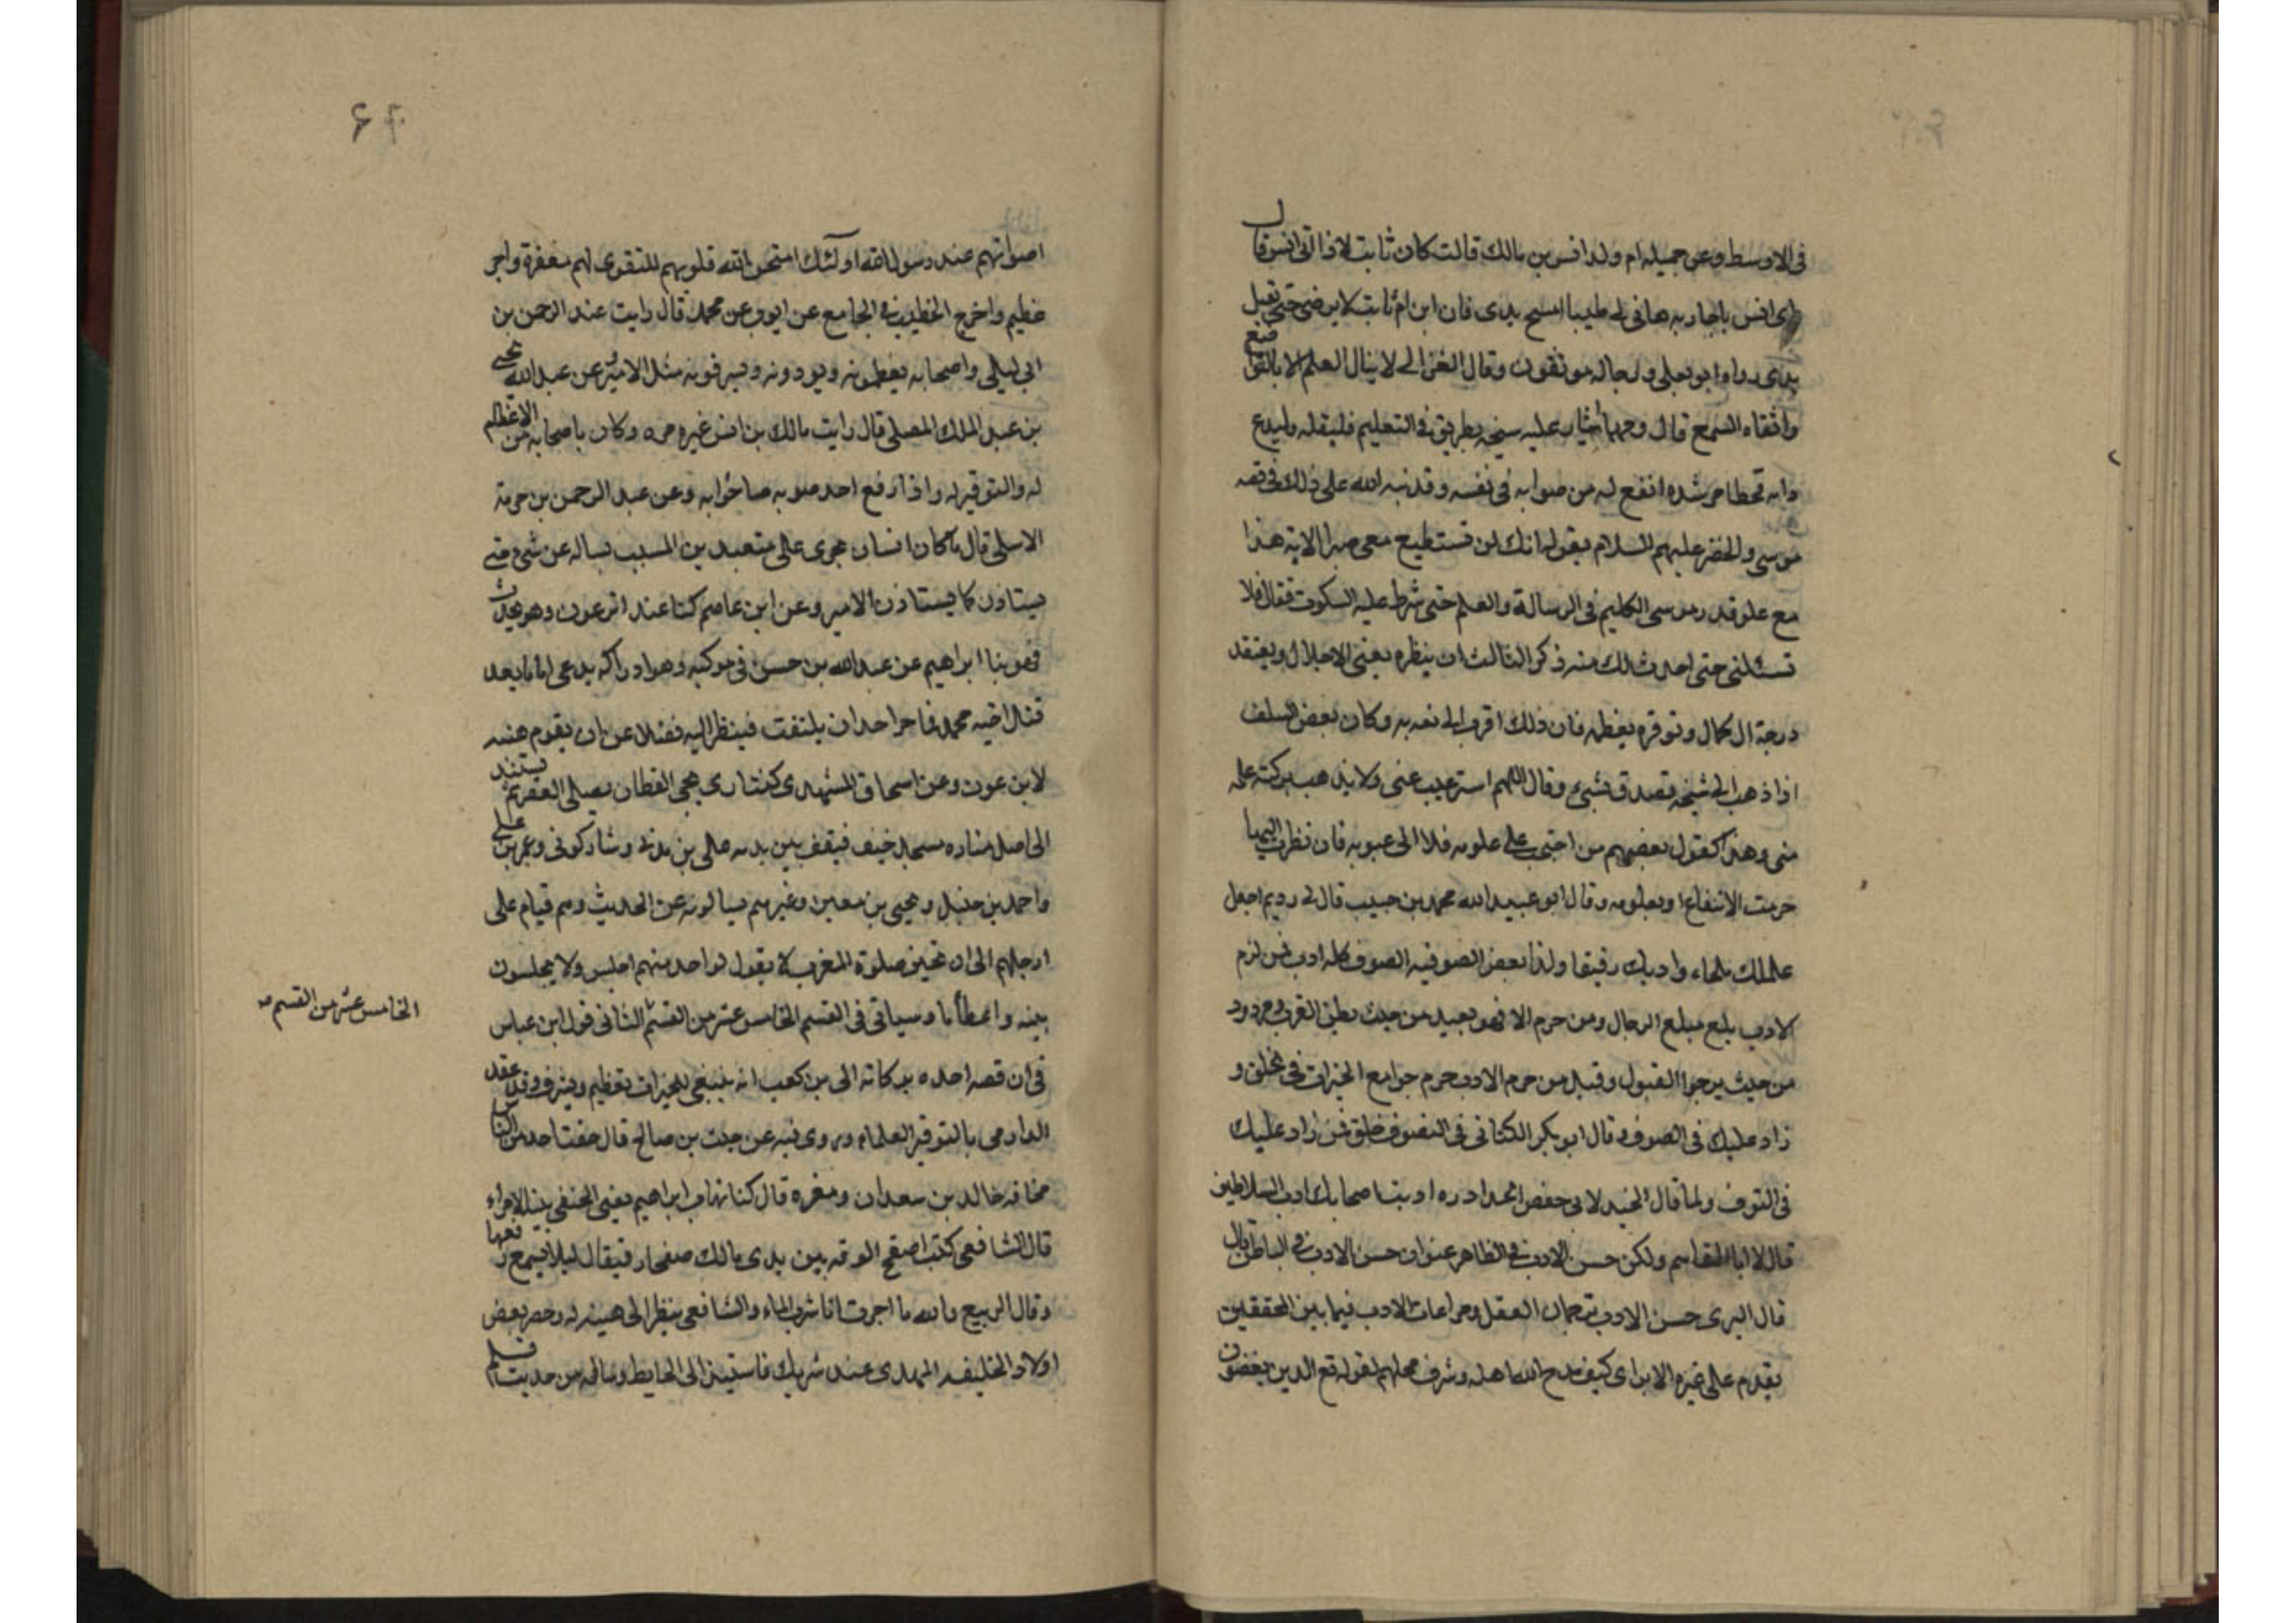 في الاوسط وعن جميله ام ولد انس بن مالك قالت كان ثابت لاذا اتى انس قال
اى انس ياجاريه هاتى لى طيبا امسح يدى فان ابن ام ثابت لا يرضى حتى تقبل
يدى رواه ابو يعلى ورجاله موثقون وقال الغزالى لا ينال العلم الا بالتواضع
واتقاء السمع قال ومهما اشار عليه شيخه بطريق فى التعليم فليقله وليدع
رايه فخطا مرشده انفع له من صوابه فى نفسه وقد نبه الله على ذلك فى قصه
موسى والخضر عليهم السلام بقوله انك لن تستطيع معى صبرا الاية هذا
مع علو قدر موسى الكليم فى الرسالة والعلم حتى شرط عليه السكوت فقال فلا
تسئلنى حتى احدث لك منه ذكر الثالث ان ينظره بعين الاجلال ويعتقد
درجة ال كمال وتوقره بعظمه فان ذلك اقرب الى نفعه به وكان بعض السلف
اذا ذهب الى شيخه تصدق بشىء وقال اللهم استر عيب عنى ولا يذهب بركته علمه
منى وهذا كقول بعضهم من اجتبى على علومه فلا الى عيوبه فان نظرت اليها
حرمت الانتفاع او بعلومه وقال ابو عبيد الله محمد بن حبيب قال لى رديم اجعل
علمك ملحاء وادبك رقيقا ولذا بعض الصوفيه الصوف كله ادب فمن لزم
الادب بلغ مبلغ الرجال ومن حرم الا فهو بعيد من حيث يظن القرب ومردود
من حيث يرجوا القبول وقيل من حرم الادب حرم جوامع الخيرات فى خلق و
زاد عليك فى الصوف وقال ابو بكر الكتانى فى التصوف خلق فمن زاد عليك
فى التوف ولما قال الجنيد لابى حفص الحداد ره ادبت اصحابك ادب السلاطين
قال لا ابا القاسم ولكن حسن الادب فى الظاهر عنوان حسن الادب فى الباطن قال
قال البرى حسن الادب ترجمان العقل ومراعات الادب فيما بين المحققين
يقدم على غيره الا برى كيف مدح الله اهله وشرف محلهم لقوله تع الذين يغضون
اصواتهم عند رسول الله اولئك امتحن الله قلوبهم للتقوى لهم مغفرة واجر
عظيم واخرج الخطيب فى الجامع عن ايوب عن محمد قال رايت عند الرحمن بن
ابى ليلى واصحابه يعظمونه ويودونه ويبرفونه مثل الامير وعن عبد الله يحيى
بن عبد الملك المصلى قال رايت مالك بن انس غيره مره وكان باصحابه من الاعظام
له والتوقير له واذا رفع احد صوبه صاحوا به وعن عبد الرحمن بن حرمة
الاسلى قال ما كان انسان يجرى على سعيد بن المسيب يساله عن شى حتى
يستاذن كما يستاذن الامير وعن ابن عاصم كنا عند ابن عون وهو يحدث
فمر بنا ابراهيم عن عبد الله بن حسن فى موكبه وهو اذ راكه يدعى اماما بعد
قتل اخيه محمد فما جرا احد ان يلتفت فينظر اليه فضلا عن ان يقوم هيبه
لابن عون وعن اسحاق الشهيدى كنت ارى يحيى القطان يصلى العصر ثم يستند
الى اصل مناره مسجد خيف فيقف بين يديه على بن مدنى وشاذكونى وعمر بن على
واحمد بن حنبل ويحيى بن معين وغيرهم يسالونه عن الحديث وهم قيام على
ارجلهم الى ان تحين صلوة المغرب لا يقول لواحد منهم اجلس ولا يجلسون
بينه واعظاما وسياتى فى القسم الخامس عشر من القسم الثانى قول ابن عباس
فى ان قصه احده بركاته الى بن كعب انه ينبغى للخيرات تعظيم ويشرف وقد عقد
الدارمى بالتوقير العلماء وروى فيه عن حبيب بن صالح قال خفت احد من الناس
مخافه خالد بن سعدان ومغره قال كنا نهاب ابراهيم يعنى الحنفى بينة الامراء
قال الشافعى كنت اصفح الورقه بين يدى مالك صفحا رقيقا ل ليلا يسمع رفعها
وقال الربيع والله ما اجرت انا شرب الماء والشافعى ينظر الى هيبه له وحضر بعض
اولاد الخليفه المهدى عند شريك فاستيند الى الحايط وساله من حديث فلم
الخامس عشر من القسم صه